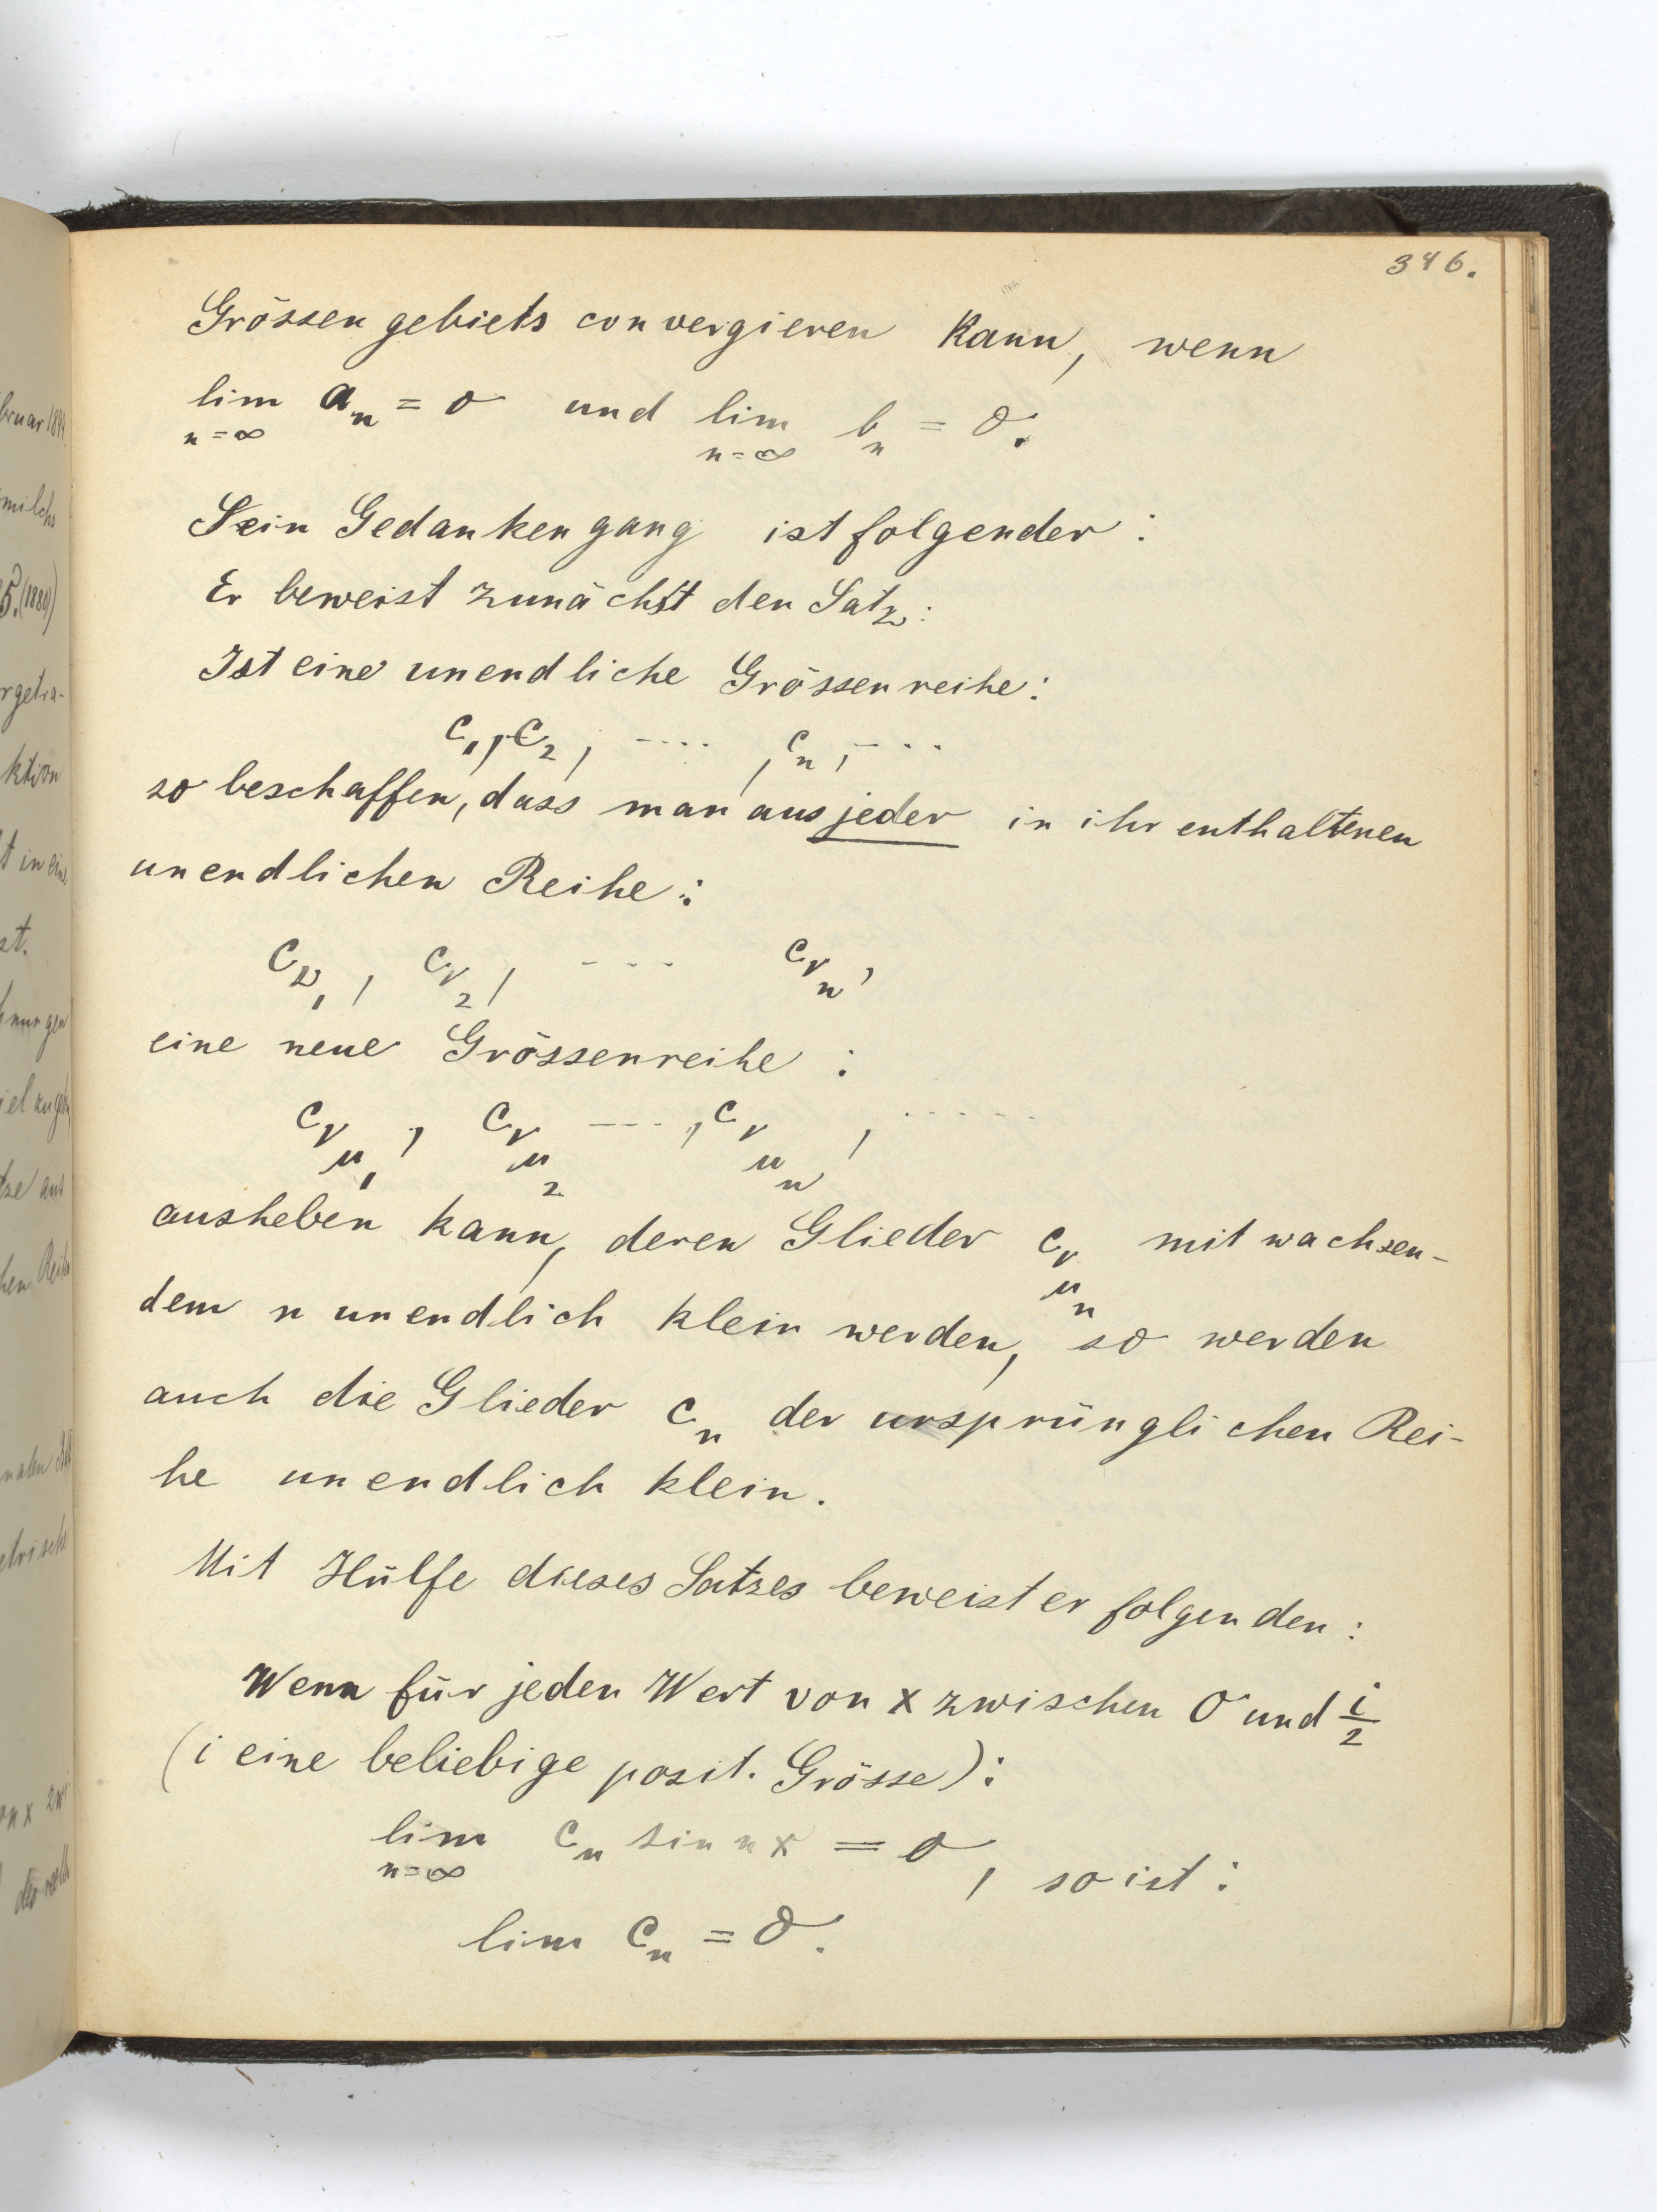 346.
Grössengebiets convergieren kann, wenn
lim a_n = 0 und lim b_n = 0.
n=∞ n=∞
Sein Gedankengang ist folgender:
Er beweist zunächst den Satz:
Ist eine unendliche Grössenreihe:
c_1, c_2, ...., c_n, ....
so beschaffen, dass man aus jeder in ihr enthaltenen
unendlichen Reihe:
c_{ν_1}, c_{ν_2}, --- c_{ν_n},
eine neue Grössenreihe:
c_{ν_{μ_1}}, c_{ν_{μ_2}} ----, c_{ν_{μ_n}}, .....
ausheben kann, deren Glieder c_{ν_{μ_n}} mit wachsen-
dem n unendlich klein werden, so werden
auch die Glieder c_n der ursprünglichen Rei-
he unendlich klein.
Mit Hülfe dieses Satzes beweist er folgenden:
Wenn für jeden Wert von x zwischen 0 und i/2
(i eine beliebige posit. Grösse):
lim c_n sin nx = 0, so ist:
n=∞
lim c_n = 0.